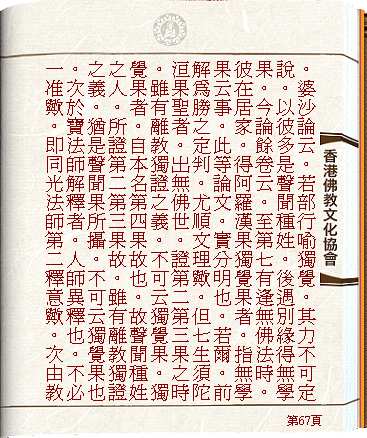 。婆沙論云。若部行喻獨覺。其力不可定
說。以彼多是聲聞種姓。後遇別緣得無學
果。今論餘卷云。至第七有逢無佛法時。
彼在居家。得阿羅漢果獨覺果者。指無學
果云事。此等論文。實分明也。若爾。前
解為勝之定判。尤順文理歟。但七生須陀
洹果聖者。出無佛世。證第二第三果之時
。雖有離教獨證之義。不可云獨覺果。獨
覺果者。自本名第四果故也。故聲聞種姓
之人。所證第二第三果故。雖有離教獨證
之義。猶是聲聞果所攝。不可云獨覺果也
。次於寶法師解釋者。人師異釋也。不必
一准歟。即同光法師第二釋意歟。次由教
香港佛教文化協會
第67頁